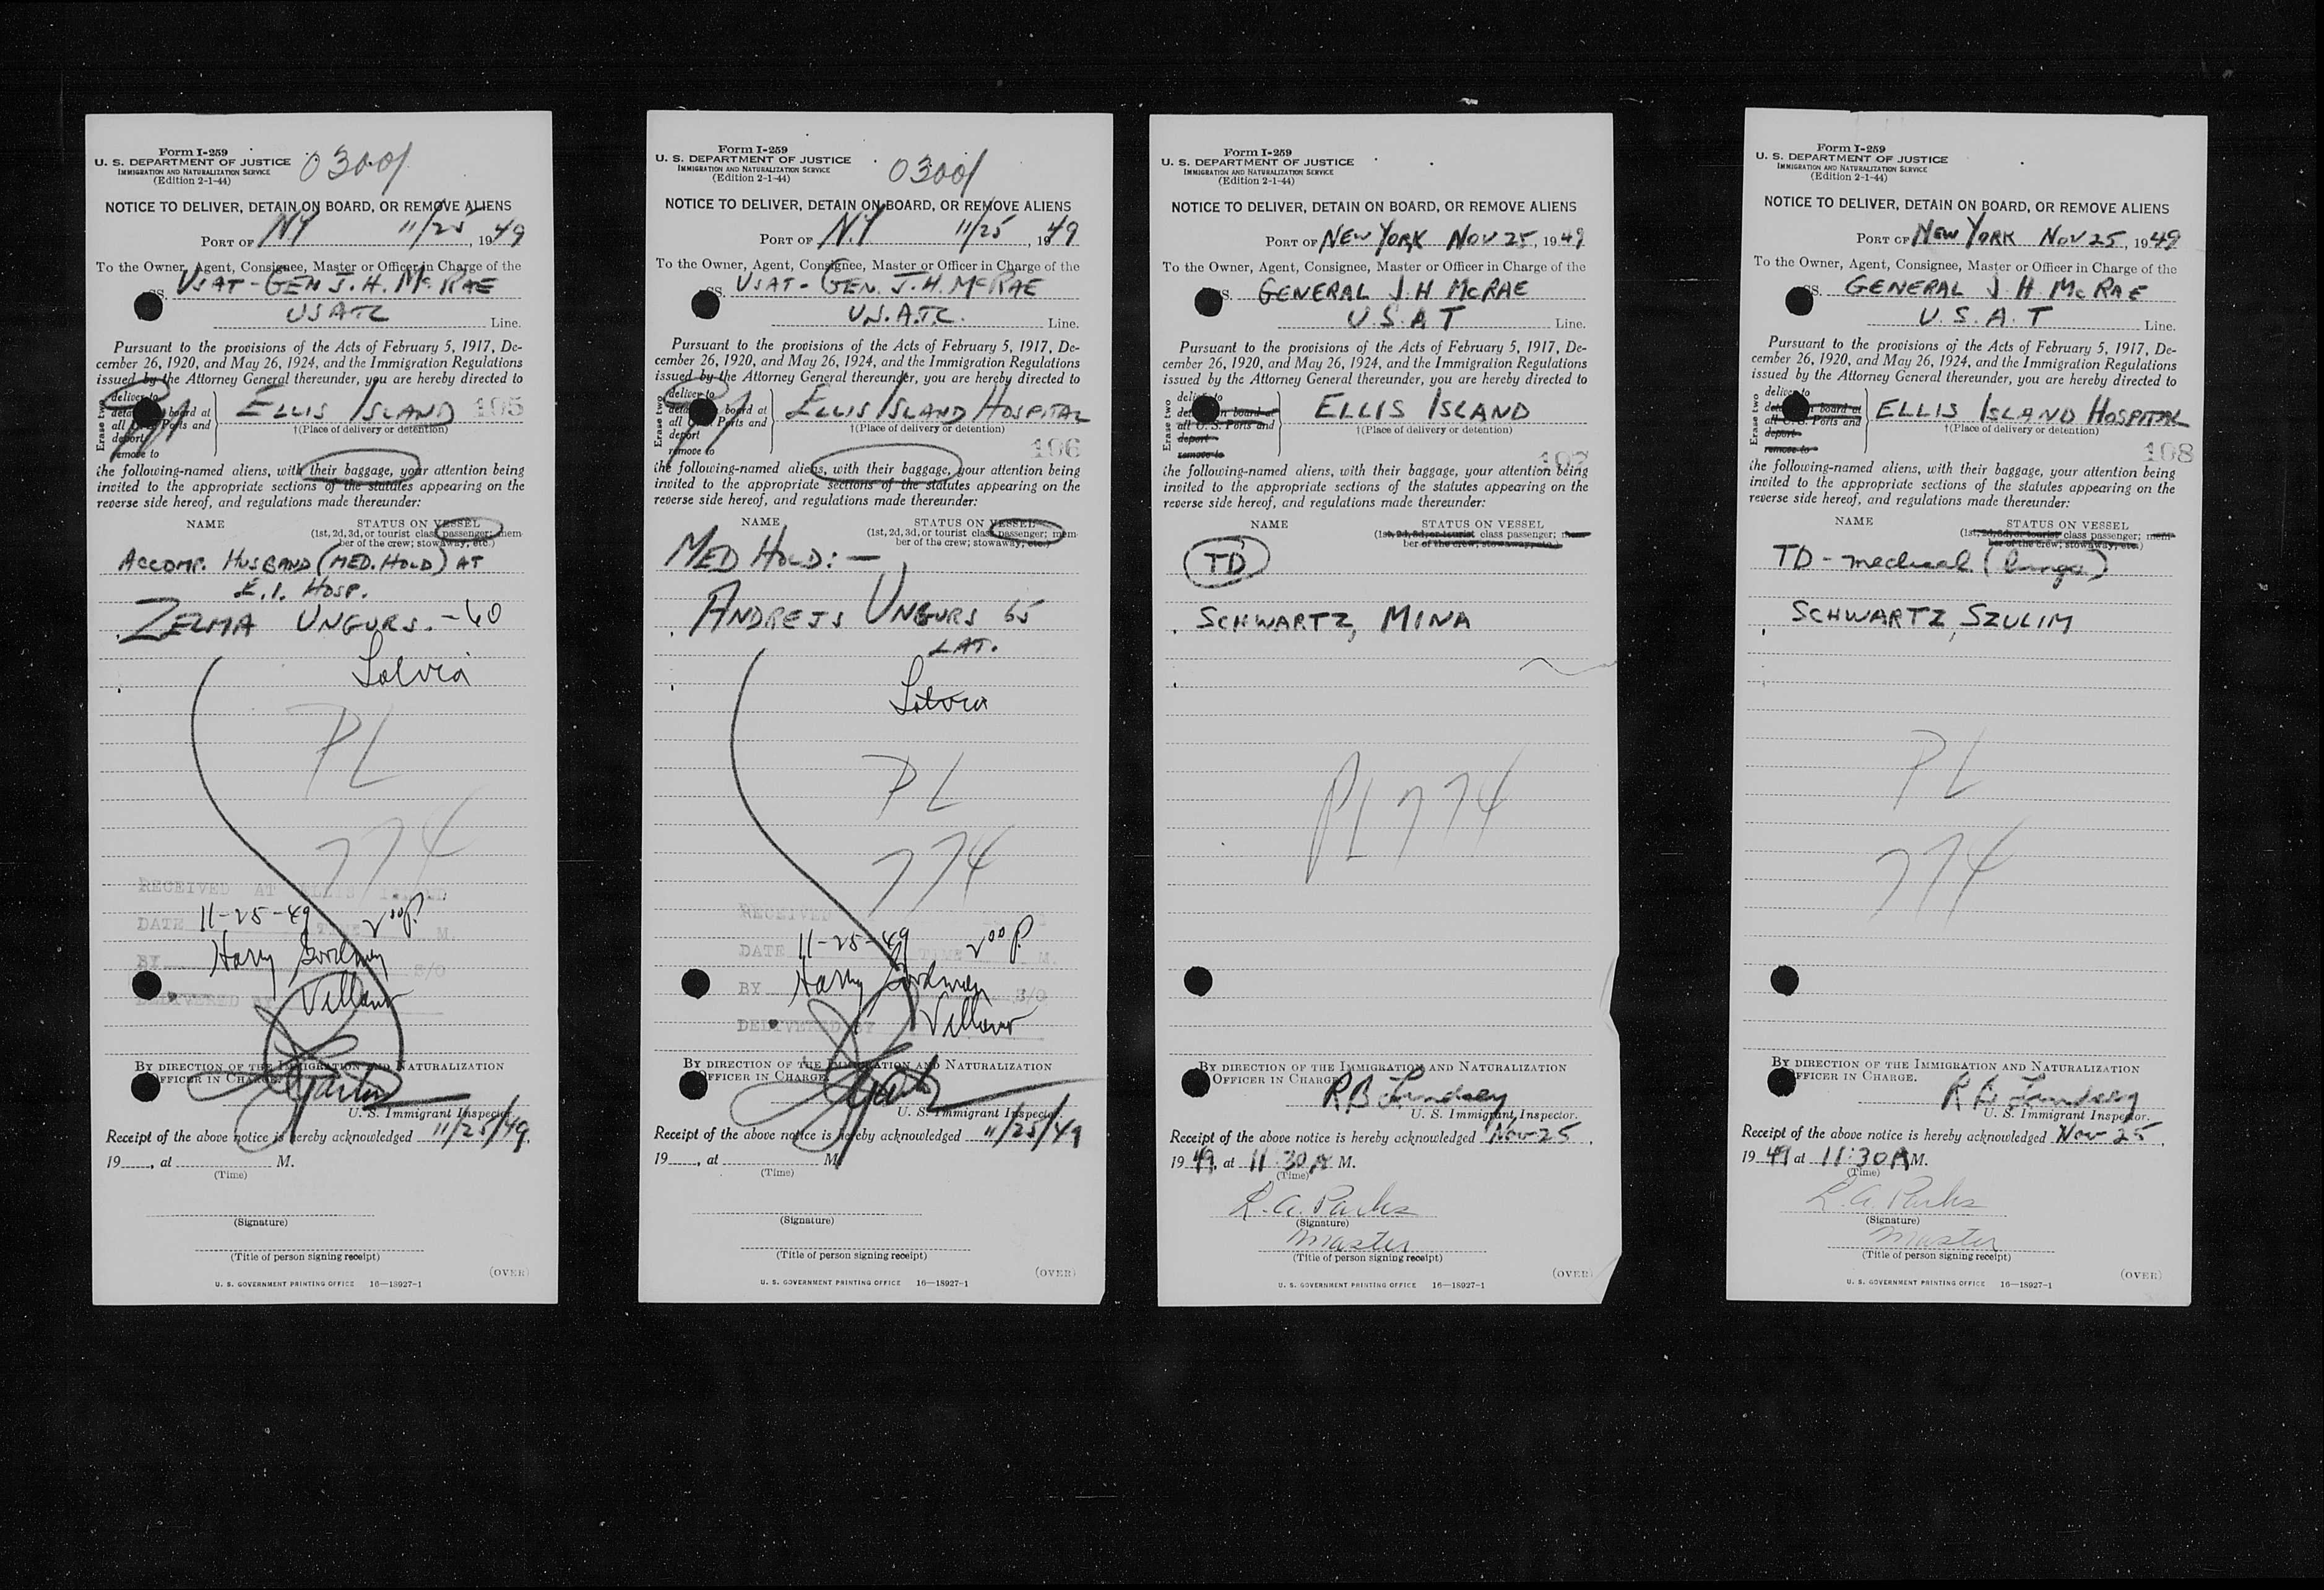 Form I-259
U. S. DEPARTMENT OF JUSTICE
IMMIGRATION AND NATURALIZATION SERVICE
(Edition 2-1-44)
0300/
NOTICE TO DELIVER, DETAIN ON BOARD, OR REMOVE ALIENS
PORT OF NY 11/25, 1949
To the Owner, Agent, Consignee, Master or Officer in Charge of the
SS. USAT - GEN J. H. McRAE
USATC Line.
Pursuant to the provisions of the Acts of February 5, 1917, De-
cember 26, 1920, and May 26, 1924, and the Immigration Regulations
issued by the Attorney General thereunder, you are hereby directed to
Erase two
deliver to
board at
all Ports and
deport
remove to
ELLIS ISLAND 105
†(Place of delivery or detention)
the following-named aliens, with their baggage, your attention being
invited to the appropriate sections of the statutes appearing on the
reverse side hereof, and regulations made thereunder:
NAME STATUS ON VESSEL
(1st, 2d, 3d, or tourist class passenger; mem-
ber of the crew; stowaway, etc.)
ACCOMP. HUSBAND (MED. HOLD) AT
E. I. HOSP.
ZELMA UNGURS. - 60
Latvia
PL
774
RECEIVED AT ELLIS ISLAND
DATE 11-25-49 TIME 2⁰⁰ P. M.
BY Harry S/O
DELIVERED BY
BY DIRECTION OF THE IMMIGRATION AND NATURALIZATION
OFFICER IN CHARGE.
U. S. Immigrant Inspector.
Receipt of the above notice is hereby acknowledged 11/25/49
19____, at ________ M.
(Time)
(Signature)
(Title of person signing receipt)
(OVER)
U. S. GOVERNMENT PRINTING OFFICE 16—18927-1
Form I-259
U. S. DEPARTMENT OF JUSTICE
IMMIGRATION AND NATURALIZATION SERVICE
(Edition 2-1-44)
0300/
NOTICE TO DELIVER, DETAIN ON BOARD, OR REMOVE ALIENS
PORT OF N.Y 11/25, 1949
To the Owner, Agent, Consignee, Master or Officer in Charge of the
SS. USAT - GEN. J. H. McRAE
U.S.A.T.C. Line.
Pursuant to the provisions of the Acts of February 5, 1917, De-
cember 26, 1920, and May 26, 1924, and the Immigration Regulations
issued by the Attorney General thereunder, you are hereby directed to
Erase two
deliver to
board at
all Ports and
deport
remove to
ELLIS ISLAND HOSPITAL
†(Place of delivery or detention)
106
the following-named aliens, with their baggage, your attention being
invited to the appropriate sections of the statutes appearing on the
reverse side hereof, and regulations made thereunder:
NAME STATUS ON VESSEL
(1st, 2d, 3d, or tourist class passenger; mem-
ber of the crew; stowaway, etc.)
MED HOLD: —
ANDREJS UNGURS 65
LAT.
Latvia
PL
774
RECEIVED
DATE 11-25-49 TIME 2⁰⁰ P. M.
BY Harry S/O
DELIVERED BY
BY DIRECTION OF THE IMMIGRATION AND NATURALIZATION
OFFICER IN CHARGE.
U. S. Immigrant Inspector.
Receipt of the above notice is hereby acknowledged 11/25/49
19____, at ________ M.
(Time)
(Signature)
(Title of person signing receipt)
(OVER)
U. S. GOVERNMENT PRINTING OFFICE 16—18927-1
Form I-259
U. S. DEPARTMENT OF JUSTICE
IMMIGRATION AND NATURALIZATION SERVICE
(Edition 2-1-44)
NOTICE TO DELIVER, DETAIN ON BOARD, OR REMOVE ALIENS
PORT OF NEW YORK NOV 25, 1949
To the Owner, Agent, Consignee, Master or Officer in Charge of the
SS. GENERAL J H McRAE
U. S. A T Line.
Pursuant to the provisions of the Acts of February 5, 1917, De-
cember 26, 1920, and May 26, 1924, and the Immigration Regulations
issued by the Attorney General thereunder, you are hereby directed to
Erase two
deliver to
on board at
all U. S. Ports and
deport
remove to
ELLIS ISLAND
†(Place of delivery or detention)
107
the following-named aliens, with their baggage, your attention being
invited to the appropriate sections of the statutes appearing on the
reverse side hereof, and regulations made thereunder:
NAME STATUS ON VESSEL
(1st, 2d, 3d, or tourist class passenger; mem-
ber of the crew; stowaway, etc.)
TD
SCHWARTZ, MINA
PL 774
BY DIRECTION OF THE IMMIGRATION AND NATURALIZATION
OFFICER IN CHARGE.
R B Lindsey
U. S. Immigrant Inspector.
Receipt of the above notice is hereby acknowledged Nov 25,
1949, at 11:30 A M.
(Time)
R. A. Parks
(Signature)
Master
(Title of person signing receipt)
(OVER)
U. S. GOVERNMENT PRINTING OFFICE 16—18927-1
Form I-259
U. S. DEPARTMENT OF JUSTICE
IMMIGRATION AND NATURALIZATION SERVICE
(Edition 2-1-44)
NOTICE TO DELIVER, DETAIN ON BOARD, OR REMOVE ALIENS
PORT OF NEW YORK NOV 25, 1949
To the Owner, Agent, Consignee, Master or Officer in Charge of the
SS. GENERAL J H McRAE
U. S. A. T Line.
Pursuant to the provisions of the Acts of February 5, 1917, De-
cember 26, 1920, and May 26, 1924, and the Immigration Regulations
issued by the Attorney General thereunder, you are hereby directed to
Erase two
deliver to
on board at
all U. S. Ports and
deport
remove to
ELLIS ISLAND HOSPITAL
†(Place of delivery or detention)
108
the following-named aliens, with their baggage, your attention being
invited to the appropriate sections of the statutes appearing on the
reverse side hereof, and regulations made thereunder:
NAME STATUS ON VESSEL
(1st, 2d, 3d, or tourist class passenger; mem-
ber of the crew; stowaway, etc.)
TD - medical (lungs)
SCHWARTZ, SZULIM
PL
774
BY DIRECTION OF THE IMMIGRATION AND NATURALIZATION
OFFICER IN CHARGE.
R B Lindsey
U. S. Immigrant Inspector.
Receipt of the above notice is hereby acknowledged Nov 25,
1949 at 11:30 A M.
(Time)
R. A. Parks
(Signature)
Master
(Title of person signing receipt)
(OVER)
U. S. GOVERNMENT PRINTING OFFICE 16—18927-1